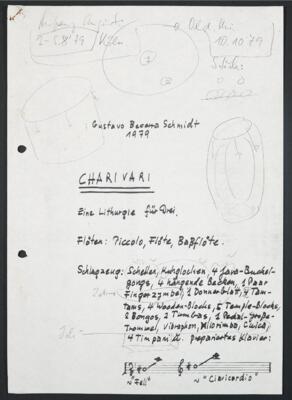 Anfang August
2-5.8.79 Köln
10.10.79
Gustavo Becerra Schmidt
1979
CHARIVARI
Eine Lithurgie für Drei.
Flöten: Piccolo, Flöte, Baßflöte.
Schlagzeug: Schellen, Kuhglocken, 4 Java-Buckel-
gongs, 4 hängende Becken, 1 Paar
Fingerzymbel, 1 Donnerblat, 4 Tam-
tams, 4 Wooden-Blocks, 5 Temple-Blocks,
2 Bongos, 2 Tumbas, 1 Pedal-große-
Trommel, Vibraphon, Marimba, Cuica,
4 Timpani &. prepariertes Klavier:
~ "Fell" ~ "Clavicordio"